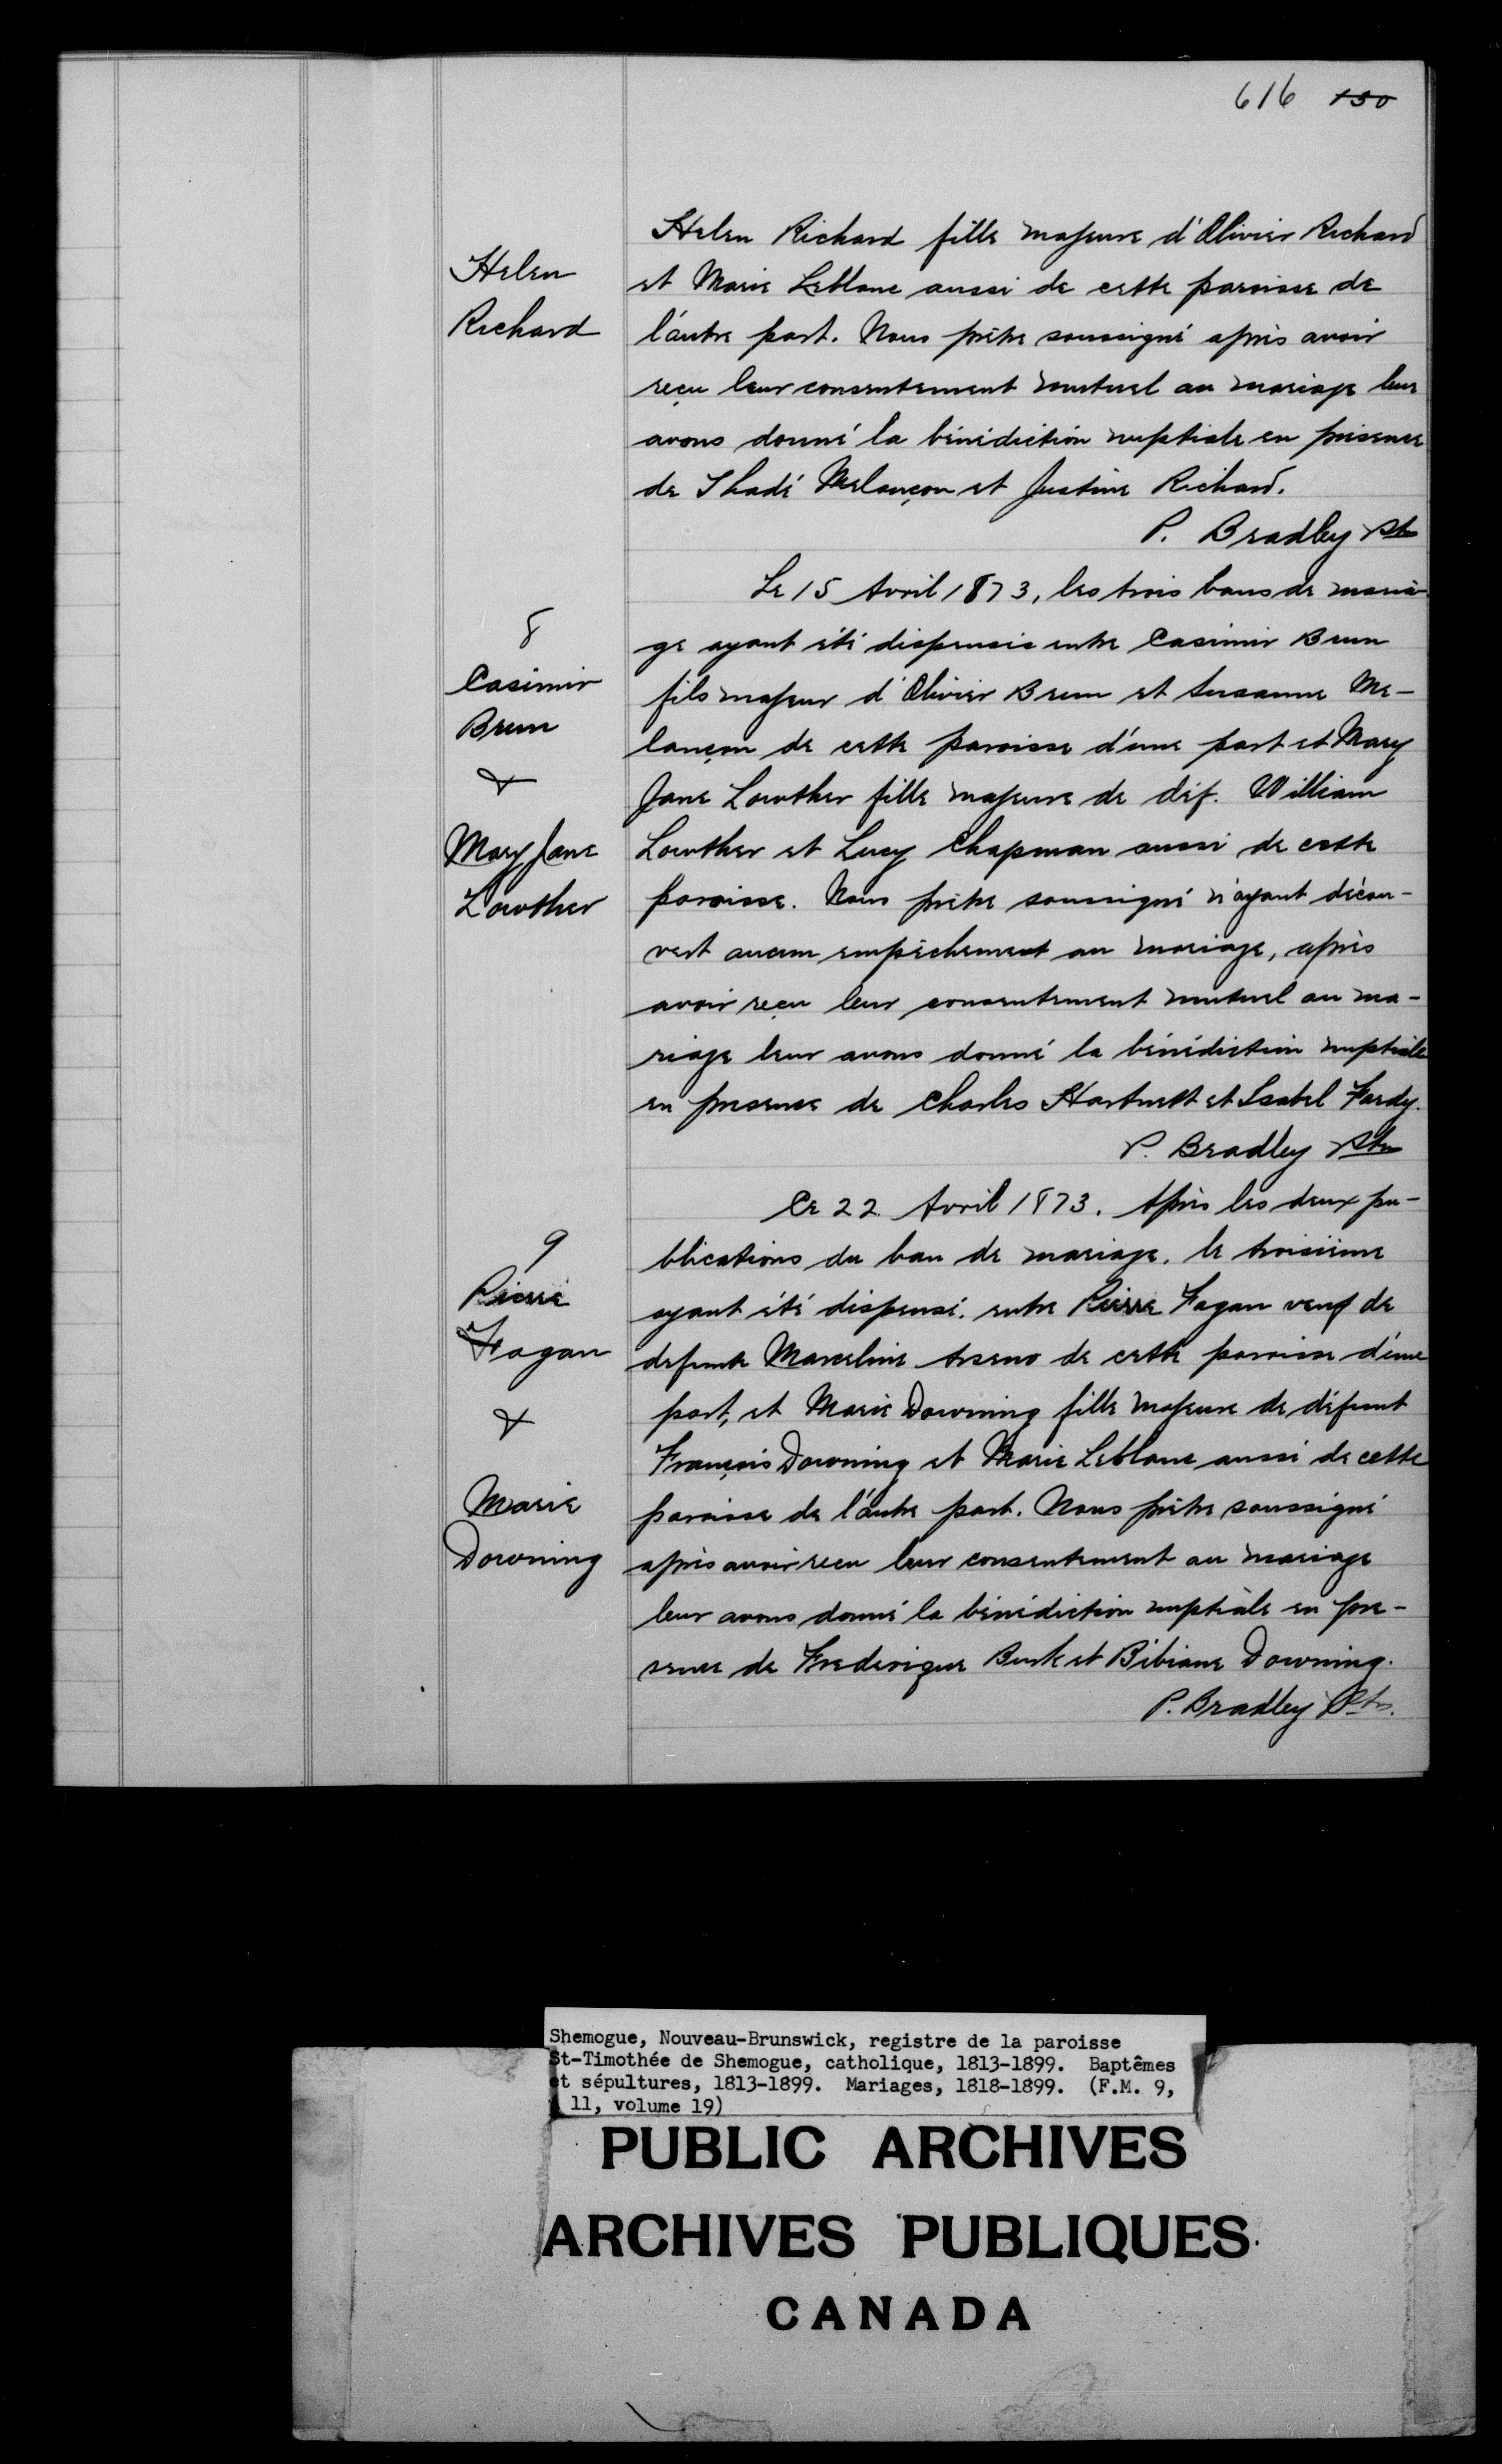 616 150
Helen
Richard
Helen Richard fille majeure d'Olivier Richard
et Marie Leblanc aussi de cette paroisse de
l'autre part. Nous prêtre soussigné après avoir
reçu leur consentement mutuel au mariage leur
avons donné la bénédiction nuptiale en présence
de Thadé Melançon et Justine Richard.
P. Bradley Ptre
8
Casimir
Brun
&
Mary Jane
Lowther
Le 15 Avril 1873, les trois bans de maria-
ge ayant été dispensés entre Casimir Brun
fils majeur d'Olivier Brun et Susanne Me-
lançon de cette paroisse d'une part et Mary
Jane Lowther fille majeure de déf. William
Lowther et Lucy Chapman aussi de cette
paroisse. Nous prêtre soussigné n'ayant décou-
vert aucun empêchement au mariage, après
avoir reçu leur consentement mutuel au ma-
riage leur avons donné la bénédiction nuptiale
en presence de Charles Hartnett et Isabel Fardy.
P. Bradley Ptre
9
Pierre
Fagan
&
Marie
Downing
Ce 22 Avril 1873. Après les deux pu-
blications du ban de mariage, le troisième
ayant été dispensé. entre Pierre Fagan veuf de
defunte Marceline Arseno de cette paroisse d'une
part, et Marie Downing fille majeure de défunt
François Downing et Marie Leblanc aussi de cette
paroisse de l'autre part. Nous prêtre soussigné
après avoir recu leur consentement au mariage
leur avons donné la bénédiction nuptiale en pre-
sence de Frederique Burk et Bibiane Downing.
P. Bradley Ptre.
Shemogue, Nouveau-Brunswick, registre de la paroisse
St-Timothée de Shemogue, catholique, 1813-1899. Baptêmes
et sépultures, 1813-1899. Mariages, 1818-1899. (F.M. 9,
11, volume 19)
PUBLIC ARCHIVES
ARCHIVES PUBLIQUES
CANADA